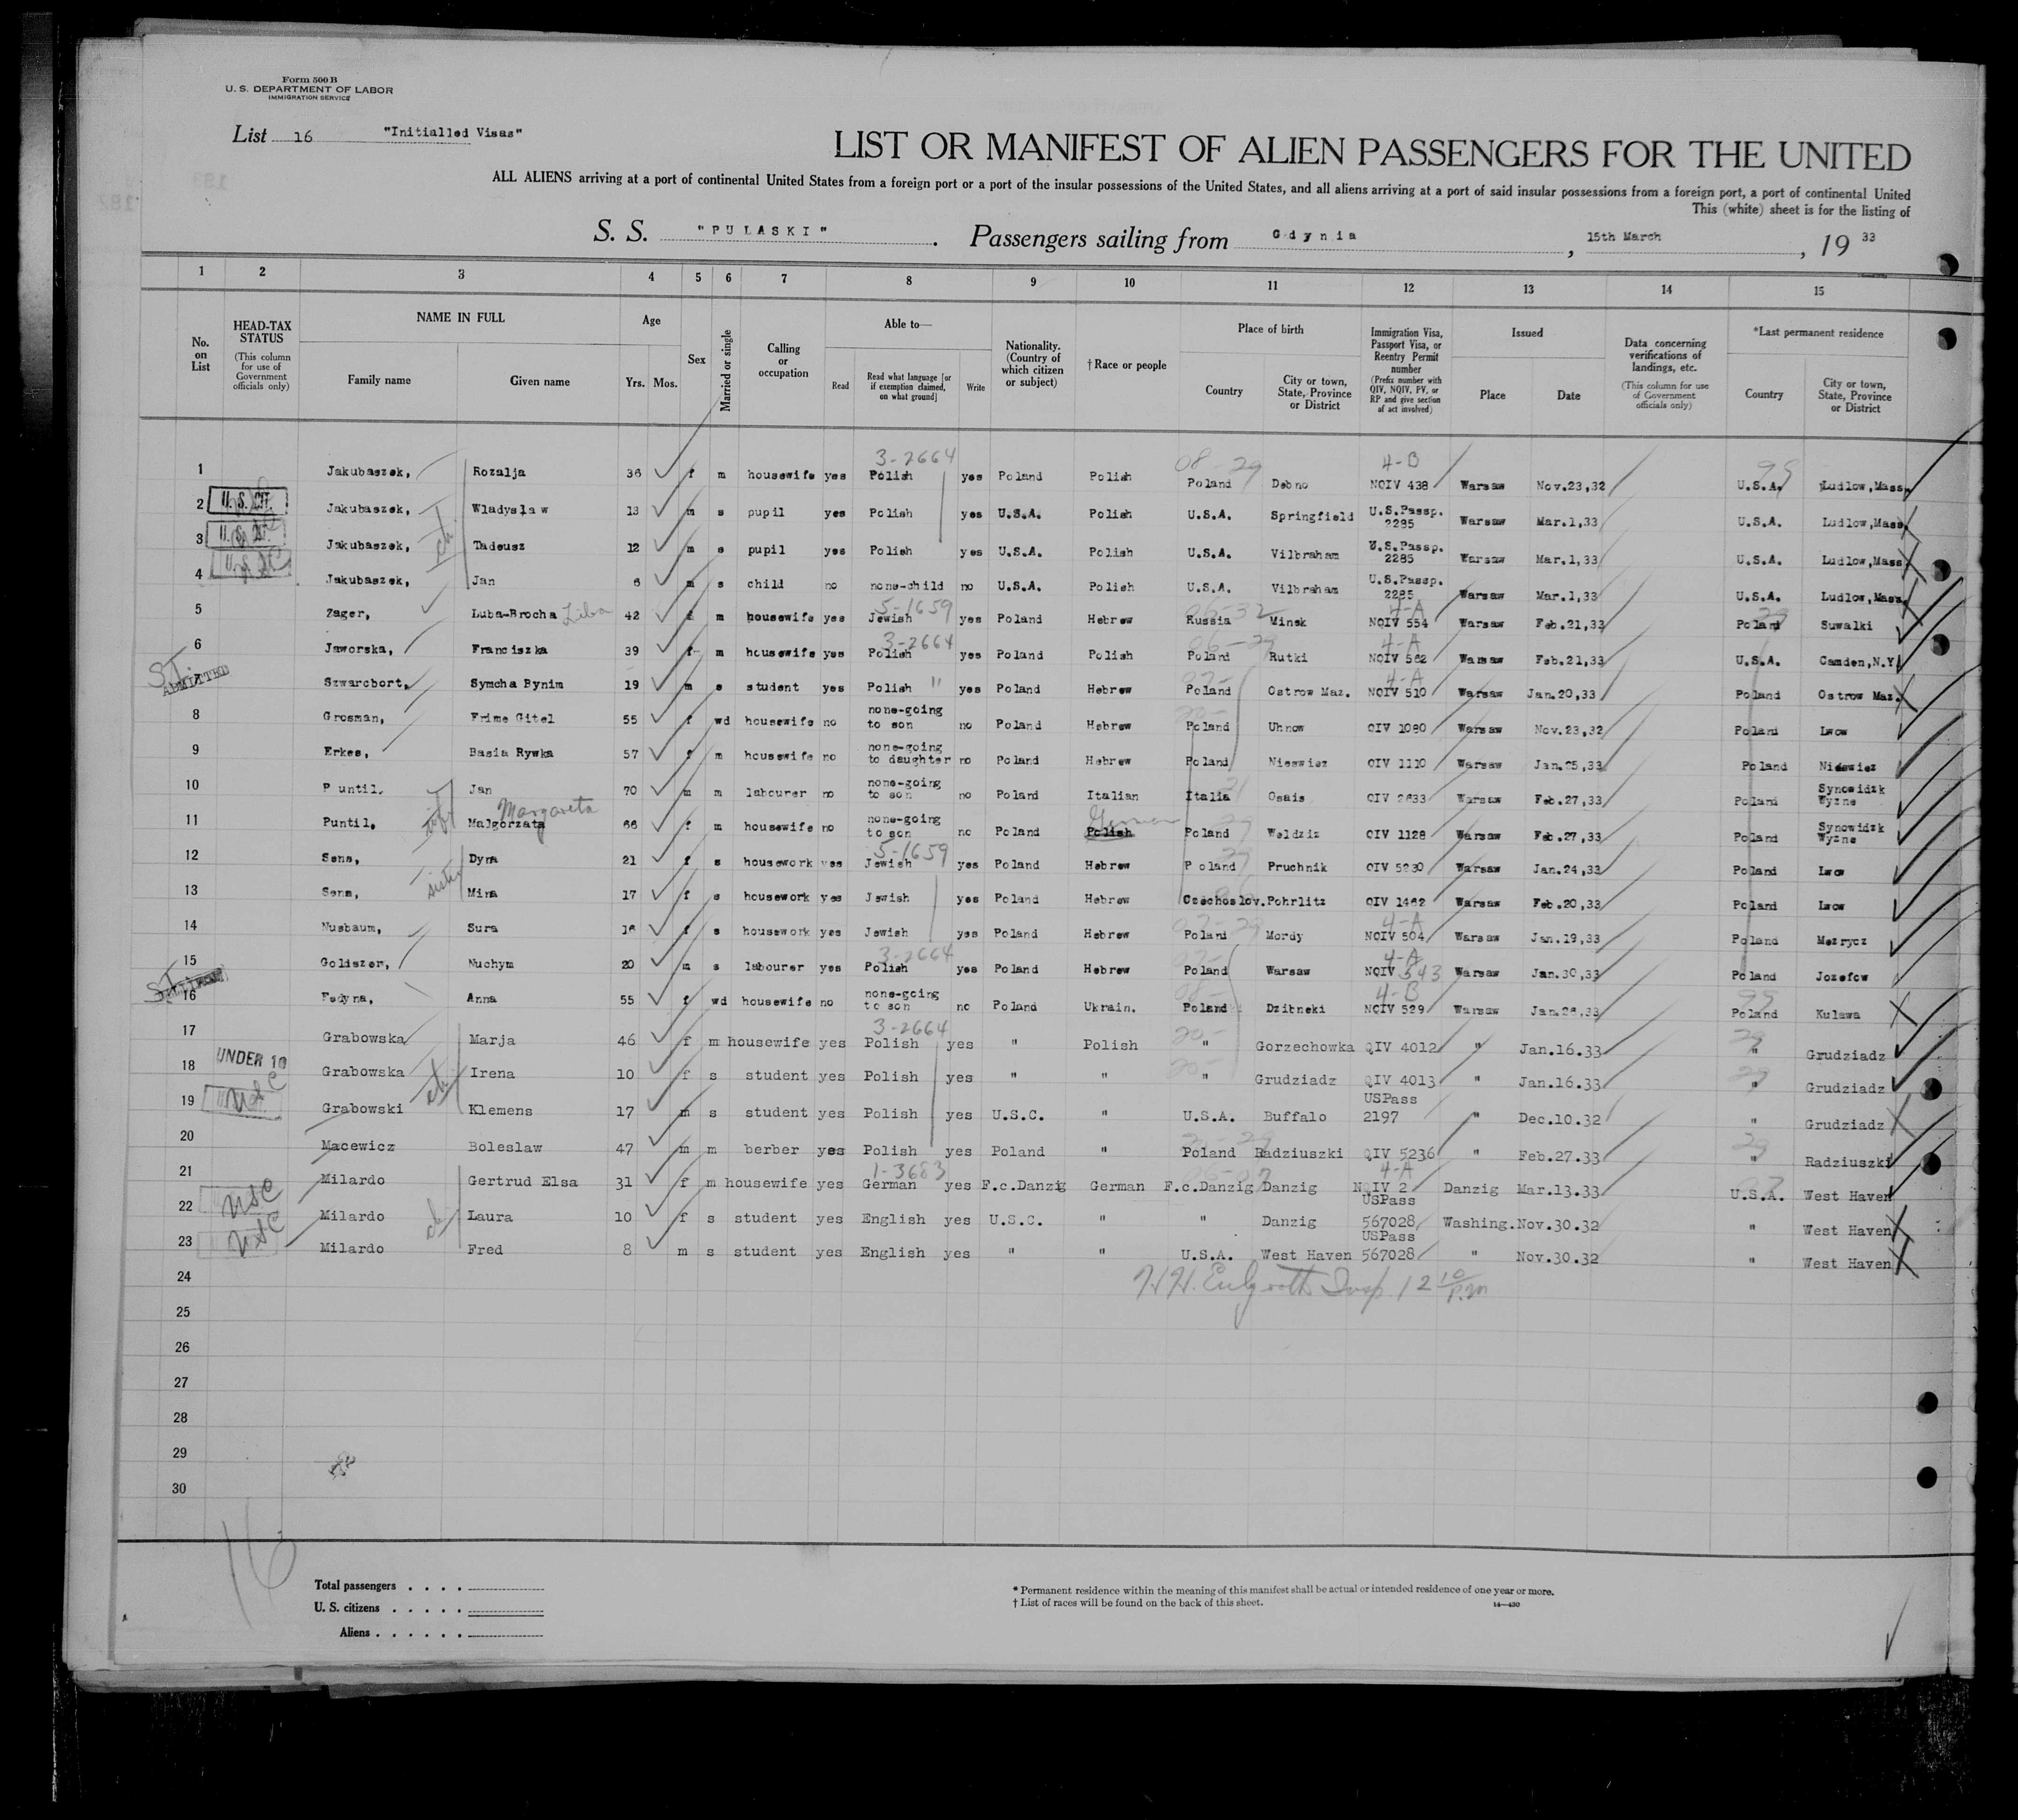 Form 500 B
U. S. DEPARTMENT OF LABOR
IMMIGRATION SERVICE
List 16 "Initialled Visas"
LIST OR MANIFEST OF ALIEN PASSENGERS FOR THE UNITED
ALL ALIENS arriving at a port of continental United States from a foreign port or a port of the insular possessions of the United States, and all aliens arriving at a port of said insular possessions from a foreign port, a port of continental United
This (white) sheet is for the listing of
S. S. "PULASKI". Passengers sailing from Gdynia, 15th March, 19 33
1 2 3 4 5 6 7 8 9 10 11 12 13 14 15
No. on List
HEAD-TAX STATUS (This column for use of Government officials only)
NAME IN FULL Family name Given name
Age Yrs. Mos.
Sex
Married or single
Calling or occupation
Able to— Read Read what language [or if exemption claimed, on what ground] Write
Nationality. (Country of which citizen or subject)
† Race or people
Place of birth Country City or town, State, Province or District
Immigration Visa, Passport Visa, or Reentry Permit number (Prefix number with QIV, NQIV, PV, or RP and give section of act involved)
Issued Place Date
Data concerning verifications of landings, etc. (This column for use of Government officials only)
*Last permanent residence Country City or town, State, Province or District
3-2664 08-29 4-B 99
1 Jakubaszek, Rozalja 36 f m housewife yes Polish yes Poland Polish Poland Debno NQIV 438 Warsaw Nov.23,32 U.S.A. Ludlow,Mass.
2 U.S. CIT. Jakubaszek, Wladyslaw 13 m s pupil yes Polish yes U.S.A. Polish U.S.A. Springfield U.S.Passp. 2285 Warsaw Mar.1,33 U.S.A. Ludlow,Mass.
3 Jakubaszek, ch. Tadeusz 12 m s pupil yes Polish yes U.S.A. Polish U.S.A. Vilbraham U.S.Passp. 2285 Warsaw Mar.1,33 U.S.A. Ludlow,Mass.
4 Jakubaszek, Jan 6 m s child no none-child no U.S.A. Polish U.S.A. Vilbraham U.S.Passp. 2285 Warsaw Mar.1,33 U.S.A. Ludlow,Mass.
5-1659 06-32 4-A 29
5 Zager, Luba-Brocha Liba 42 f m housewife yes Jewish yes Poland Hebrew Russia Minsk NQIV 554 Warsaw Feb.21,33 Poland Suwalki
3-2664 06-29 4-A
6 Jaworska, Franciszka 39 f m housewife yes Polish yes Poland Polish Poland Rutki NQIV 562 Warsaw Feb.21,33 U.S.A. Camden,N.Y.
4-A
7 SI ADMITTED Szwarcbort, Symcha Bynim 19 m s student yes Polish " yes Poland Hebrew Poland Ostrow Maz. NQIV 510 Warsaw Jan.20,33 Poland Ostrow Maz.
8 Grosman, Frime Gitel 55 f wd housewife no none-going to son no Poland Hebrew Poland Uhnow QIV 1080 Warsaw Nov.23,32 Poland Lwow
9 Erkes, Basia Rywka 57 f m housewife no none-going to daughter no Poland Hebrew Poland Nieswiez QIV 1110 Warsaw Jan.25,33 Poland Nieswiez
10 Puntil, Jan 70 m m labourer no none-going to son no Poland Italian Italia Osais QIV 2633 Warsaw Feb.27,33 Poland Synowidzk Wyzne
11 Puntil, wife Malgorzata Margareta 66 f m housewife no none-going to son no Poland Polish German Poland Weldziz QIV 1128 Warsaw Feb.27,33 Poland Synowidzk Wyzne
5-1659
12 Sens, Dyna 21 f s housework yes Jewish yes Poland Hebrew Poland Pruchnik QIV 5230 Warsaw Jan.24,33 Poland Lwow
13 Sens, sister Mina 17 f s housework yes Jewish yes Poland Hebrew Czechoslov. Pohrlitz QIV 1462 Warsaw Feb.20,33 Poland Lwow
4-A
14 Nusbaum, Sura 16 f s housework yes Jewish yes Poland Hebrew Poland Mordy NQIV 504 Warsaw Jan.19,33 Poland Mezrycz
3-2664 4-A
15 Goldszer, Nuchym 20 m s labourer yes Polish yes Poland Hebrew Poland Warsaw NQIV 543 Warsaw Jan.30,33 Poland Jozefow
4-B
16 SI Fedyna, Anna 55 f wd housewife no none-going to son no Poland Ukrain. Poland Dzibneki NQIV 529 Warsaw Jan.26,33 Poland Kulawa
3-2664
17 Grabowska Marja 46 f m housewife yes Polish yes " Polish " Gorzechowka QIV 4012 " Jan.16.33 " Grudziadz
18 UNDER 16 Grabowska Irena 10 f s student yes Polish yes " " " Grudziadz QIV 4013 " Jan.16.33 " Grudziadz
19 USC Grabowski ch Klemens 17 m s student yes Polish yes U.S.C. " U.S.A. Buffalo USPass 2197 " Dec.10.32 " Grudziadz
20 Macewicz Boleslaw 47 m m berber yes Polish yes Poland " Poland Radziuszki QIV 5236 " Feb.27.33 " Radziuszki
1-3683 4-A
21 Milardo Gertrud Elsa 31 f m housewife yes German yes F.c.Danzig German F.c.Danzig Danzig NQIV 2 Danzig Mar.13.33 U.S.A. West Haven
22 USC Milardo ch Laura 10 f s student yes English yes U.S.C. " " Danzig USPass 567028 Washing. Nov.30.32 " West Haven
23 USC Milardo Fred 8 m s student yes English yes " " U.S.A. West Haven USPass 567028 " Nov.30.32 " West Haven
24
25
26
27
28
29
30
16
Total passengers
U. S. citizens
Aliens
* Permanent residence within the meaning of this manifest shall be actual or intended residence of one year or more.
† List of races will be found on the back of this sheet.
14—430